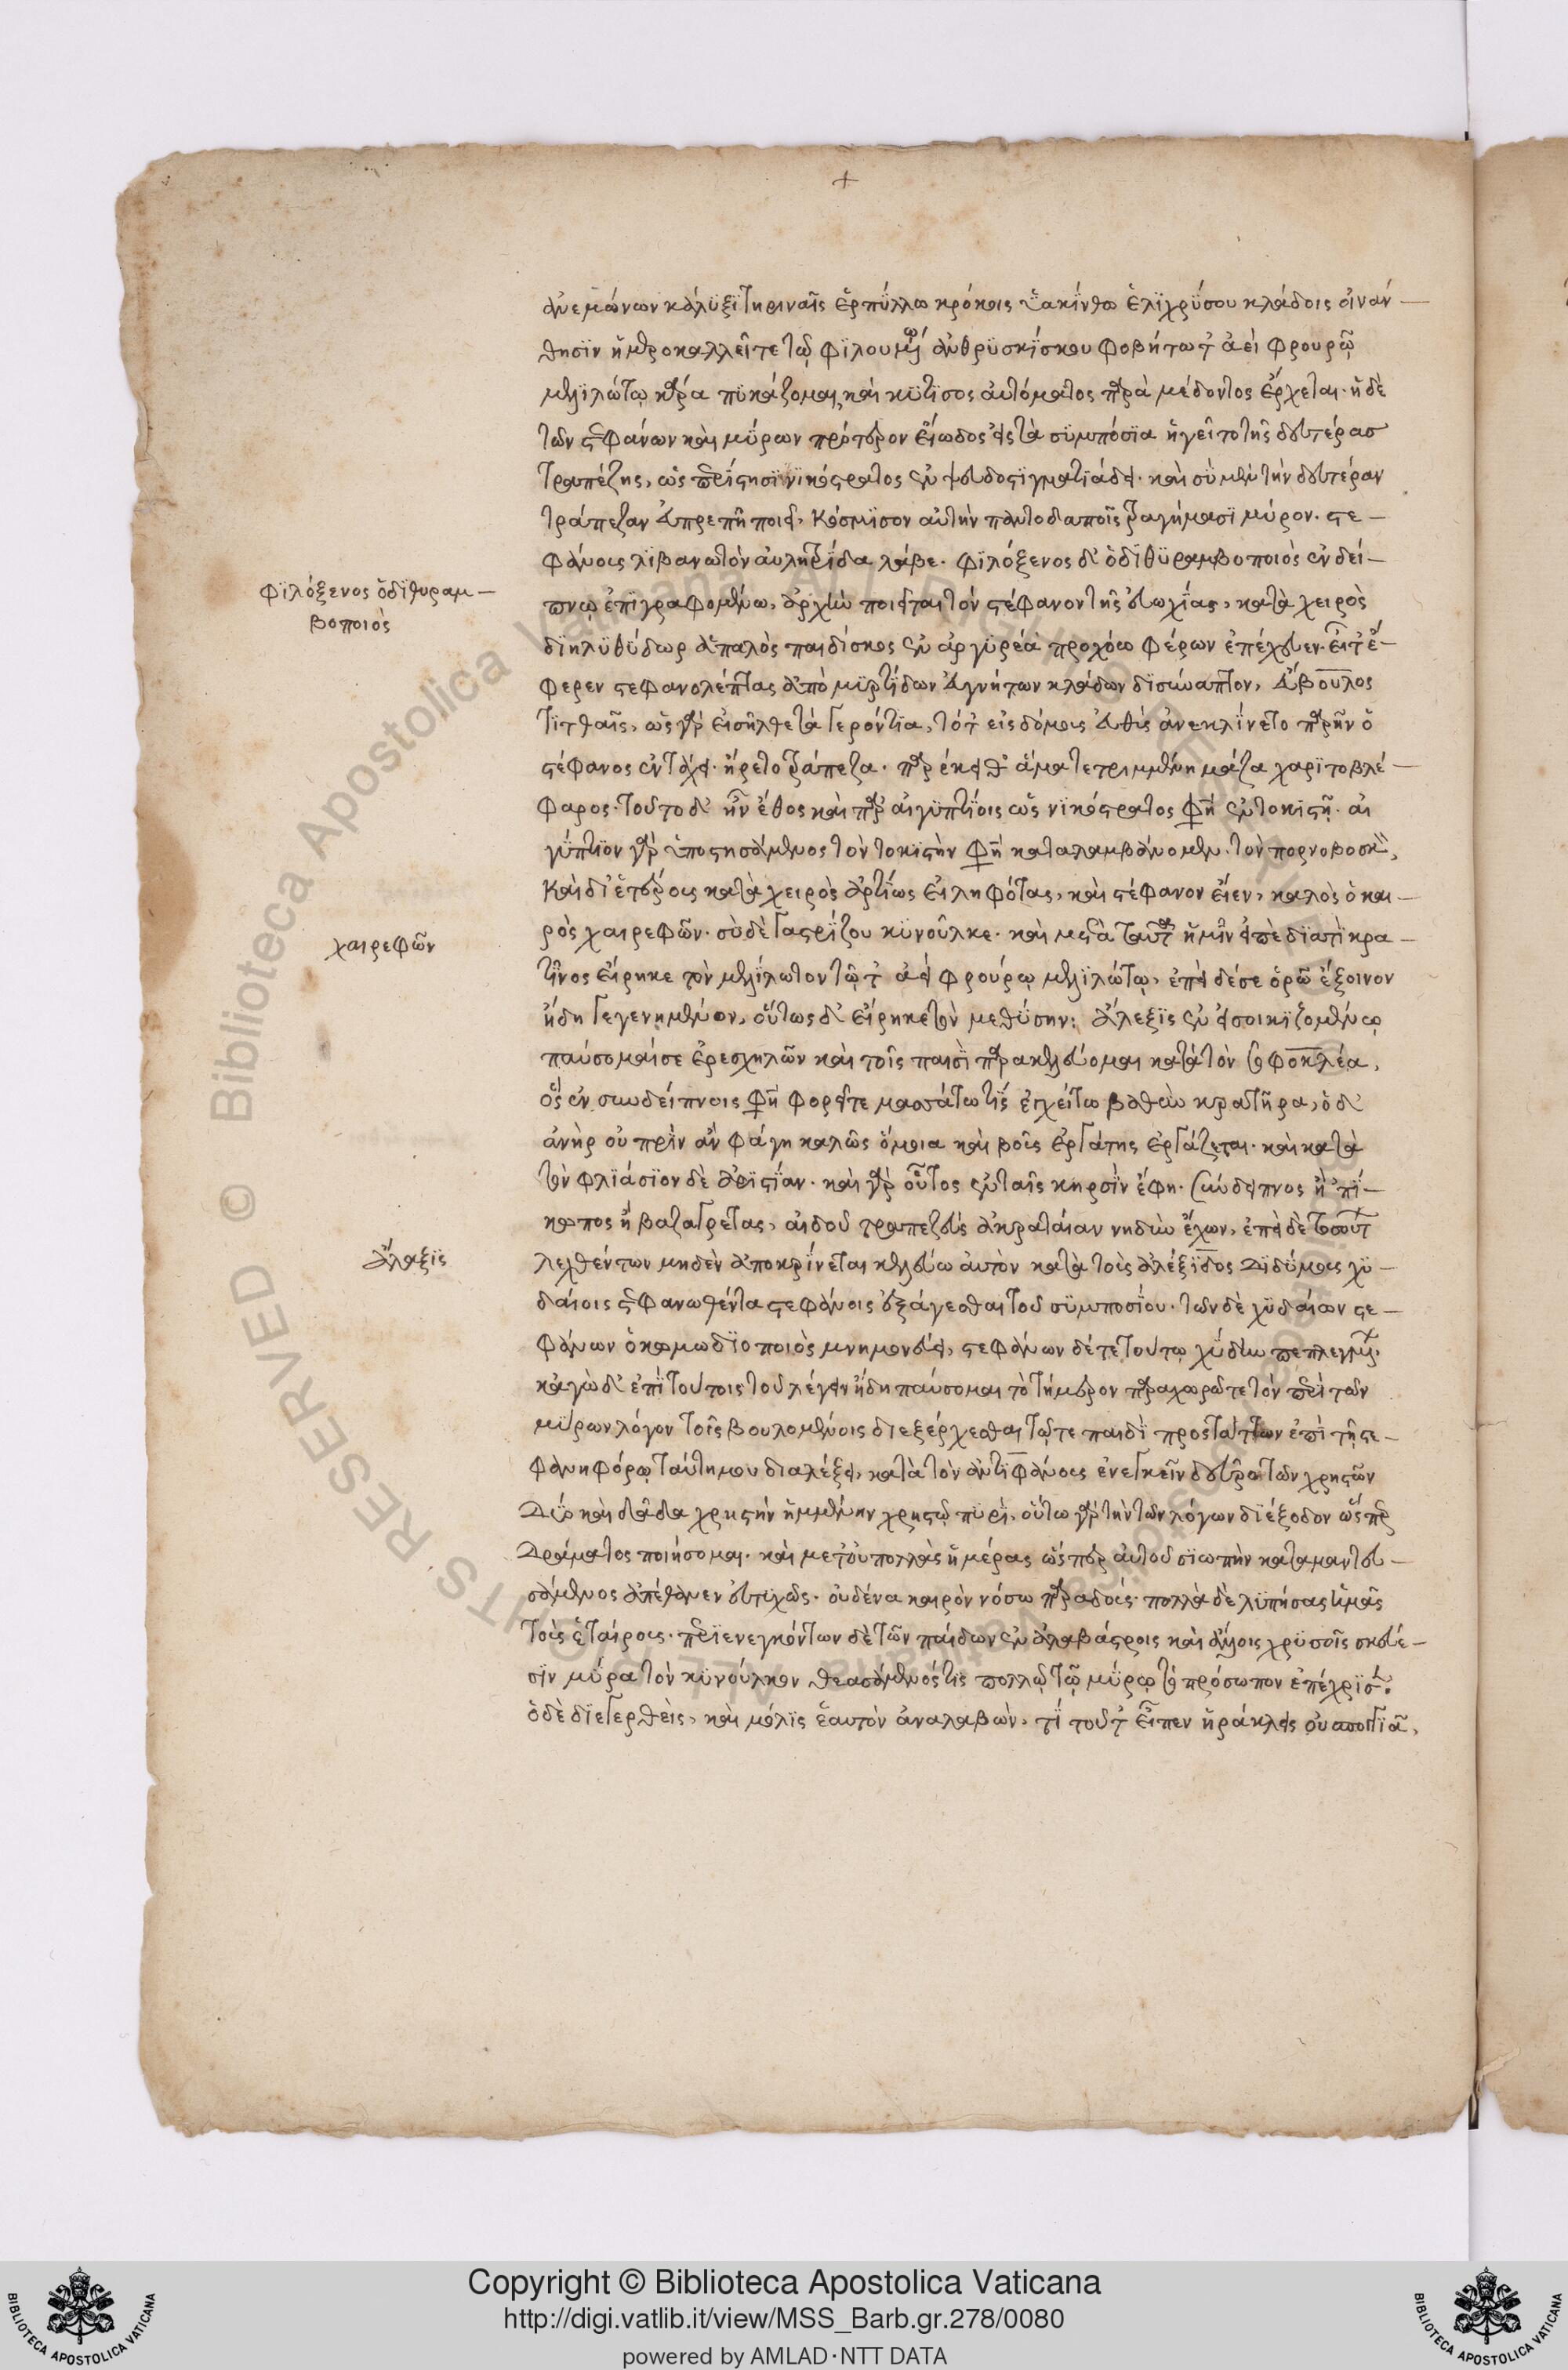 ἀνεμώνων κάλυξϊ τ' ηριναῖς ἑρπύλλω κρόκοις ὑακίνθω ἑλϊχρύσου κλάδοις οἰνάν—
θησϊν ἡμεροκαλλεῖ τε τῷ φϊλουμένω ἀνθρϋσκίσκου φοβήτωτ' ἀεὶ φρουρῷ
μελϊλώτω κάρα πϋκάζομαι, καὶ κύτϊσος αὐτόματος παρὰ μέδοντος ἔρχεται· ἡ δὲ
τῶν στεφάνων καὶ μύρων πρότερον εἴσοδος εἰς τὰ σϋμπόσϊα ἡγεῖτο τῆς δευτέρας
τραπέζης, ὡς παρίστησϊ νϊκόστρατος ἐν ψευδοστϊγματϊάδει· καὶ σὺ μὲν τὴν δευτέραν
τράπεζαν εὐπρεπῆ ποιεῖ, κόσμϊσον αὐτὴν παντοδαποῖς τραγήμασϊ μύρον· στε—
φάνους λϊβανωτὸν αὐλητρίδα λάβε· φϊλόξενος δ' ὁ δϊθϋραμβοποιὸς ἐν δεί—
πνῳ ἐπϊγραφομένω, ἀρχὴν ποιεῖται τὸν στέφανον τῆς εὐωχΐας, κατὰ χειρὸς
δ' ἤλϋθ' ὕδωρ ἁπαλὸς παιδίσκος ἐν ἀργϋρέα προχόω φέρων ἐπέχευεν· εἶτ' ἔ—
φερεν στεφανολέπτας ἀπὸ μϋρτΐδων εὐγνήτων κλάδων δϊσύναπτον, εὔβουλος
τίτθαις, ὡς γὰρ εἰσῆλθε τὰ γερόντϊα, τότ' εἰς δόμους εὐθὺς ἀνεκλΐνετο παρῆν ὁ
στέφανος ἐν τάχει· ἤρετο τράπεζα· παρέκειθ' ἅμα τετριμμένη μάζα χαρϊτοβλέ—
φαρος· τοῦτο δ' ἦν ἔθος καὶ παρ' αἰγϋπτΐοις ὡς νϊκόστρατος φησὶ ἐν τοκιστῆ· αἰ
γΰπτϊον γὰρ ὑποστησάμενος τὸν τοκϊστὴν φησὶ καταλαμβάνομεν· τὸν πορνοβοσκὸν,
καὶ δύ' ἑτέρους κατὰ χειρὸς ἀρτΐως εἰληφότας, καὶ στέφανον εἶεν, καλὸς ὁ και—
ρὸς χαιρεφῶν· σὺ δὲ γαστρΐζου κϋνοῦλκε· καὶ μετὰ ταῦθ' ἡμῖν εἰπὲ δϊατὶ κρα—
τῖνος εἴρηκε τὸν μελΐλωτον τῷ τ' ἀεὶ φρούρῳ μελϊλώτῳ, ἐπεὶ δέ σε ὁρῶ ἔξοινον
ἤδη γεγενημένον, οὕτως δ' εἴρηκε τὸν μεθύσην: ἄλεξϊς ἐν εἰσοικϊζομένῳ
παύσομαί σε ἐρεσχηλῶν καὶ τοῖς παισὶ παρακελεύομαι κατὰ τὸν σοφοκλέα,
ὃς ἐν συνδείπνοις φησὶ φορεῖτε μασσάτω τΐς ἐγχείτω βαθὺν κρατῆρα, ὁ δ'
ἀνὴρ οὐ πρὶν ἂν φάγη καλῶς ὅμοια καὶ βοῦς ἐργάτης ἐργάζεται· καὶ κατὰ
τὸν φλιάσϊον δὲ ἀρϊστΐαν· καὶ γὰρ οὗτος ἐν ταῖς κηρσὶν ἔφη· σύνδειπνος ἢ 'πΐ—
κωμος ἢ βαζαγρέτας, αἰδοῦ τραπεζεὺς ἀκραταίαν νηδὺν ἔχων, ἐπεὶ δὲ τοσούτων
λεχθέντων μηδὲν ἀποκρΐνεται κελεύω αὐτὸν κατὰ τοὺς ἀλέξϊδος Δϊδύμους χϋ—
δαίοις στεφανωθέντα στεφάνοις ἐξάγεσθαι τοῦ σϋμποσΐου· τῶν δὲ χϋδαίων στε—
φάνων ὁ κωμωδϊοποιὸς μνημονεύει, στεφάνων δέ τε τούτῳ χΰδην πεπλεγμένων·
κἀγὼ δ' ἐπὶ τούτοις τοῦ λέγειν ἤδη παύσομαι τὸ τήμερον παραχωρῶ τε τὸν περὶ τῶν
μϋρων λόγον τοῖς βουλομένοις διεξέρχεσθαι τῷ τε παιδὶ προστάττων ἐπὶ τῇ στε—
φανηφόρῳ ταύτη μου διαλέξει, κατὰ τὸν ἀντϊφάνους ἐνεγκεῖν δεῦρο τῶν χρηστῶν
Δύο καὶ δᾷδα χρηστὴν ἡμμένην χρηστῷ πϋρὶ, οὕτω γὰρ τὴν τῶν λόγων δϊέξοδον ὥσπερ
Δράματος ποιήσομαι· καὶ μετ' οὐ πολλὰς ἡμέρας ὥσπερ αὐτοῦ σϊωπὴν καταμαντευ—
σάμενος ἀπέθανεν εὐτϋχῶς· οὐδένα καιρὸν νόσω παραδούς· πολλὰ δὲ λϋπήσας ἡμᾶς
τοὺς ἑταίρους· περϊενεγκόντων δὲ τῶν παίδων ἐν ἀλαβάστροις καὶ ἄλλοις χρϋσοῖς σκεύε—
σϊν μύρα τὸν κϋνούλκον θεασάμενός τις πολλῷ τῷ μύρῳ τὸ πρόσωπον ἐπέχρϊσε·
ὁ δὲ δϊεγερθεὶς, καὶ μόλϊς ἑαυτὸν ἀναλαβὼν, τΐ τοῦτ' εἶπεν ἡράκλεις οὐ σπογγϊᾶ,
φϊλόξενος ὁ δϊθυραμ—
βοποιὸς
χαιρεφῶν
ἄλαξϊς
Copyright © Biblioteca Apostolica Vaticana
http://digi.vatlib.it/view/MSS_Barb.gr.278/0080
powered by AMLAD·NTT DATA
BIBLIOTECA APOSTOLICA VATICANA
BIBLIOTECA APOSTOLICA VATICANA